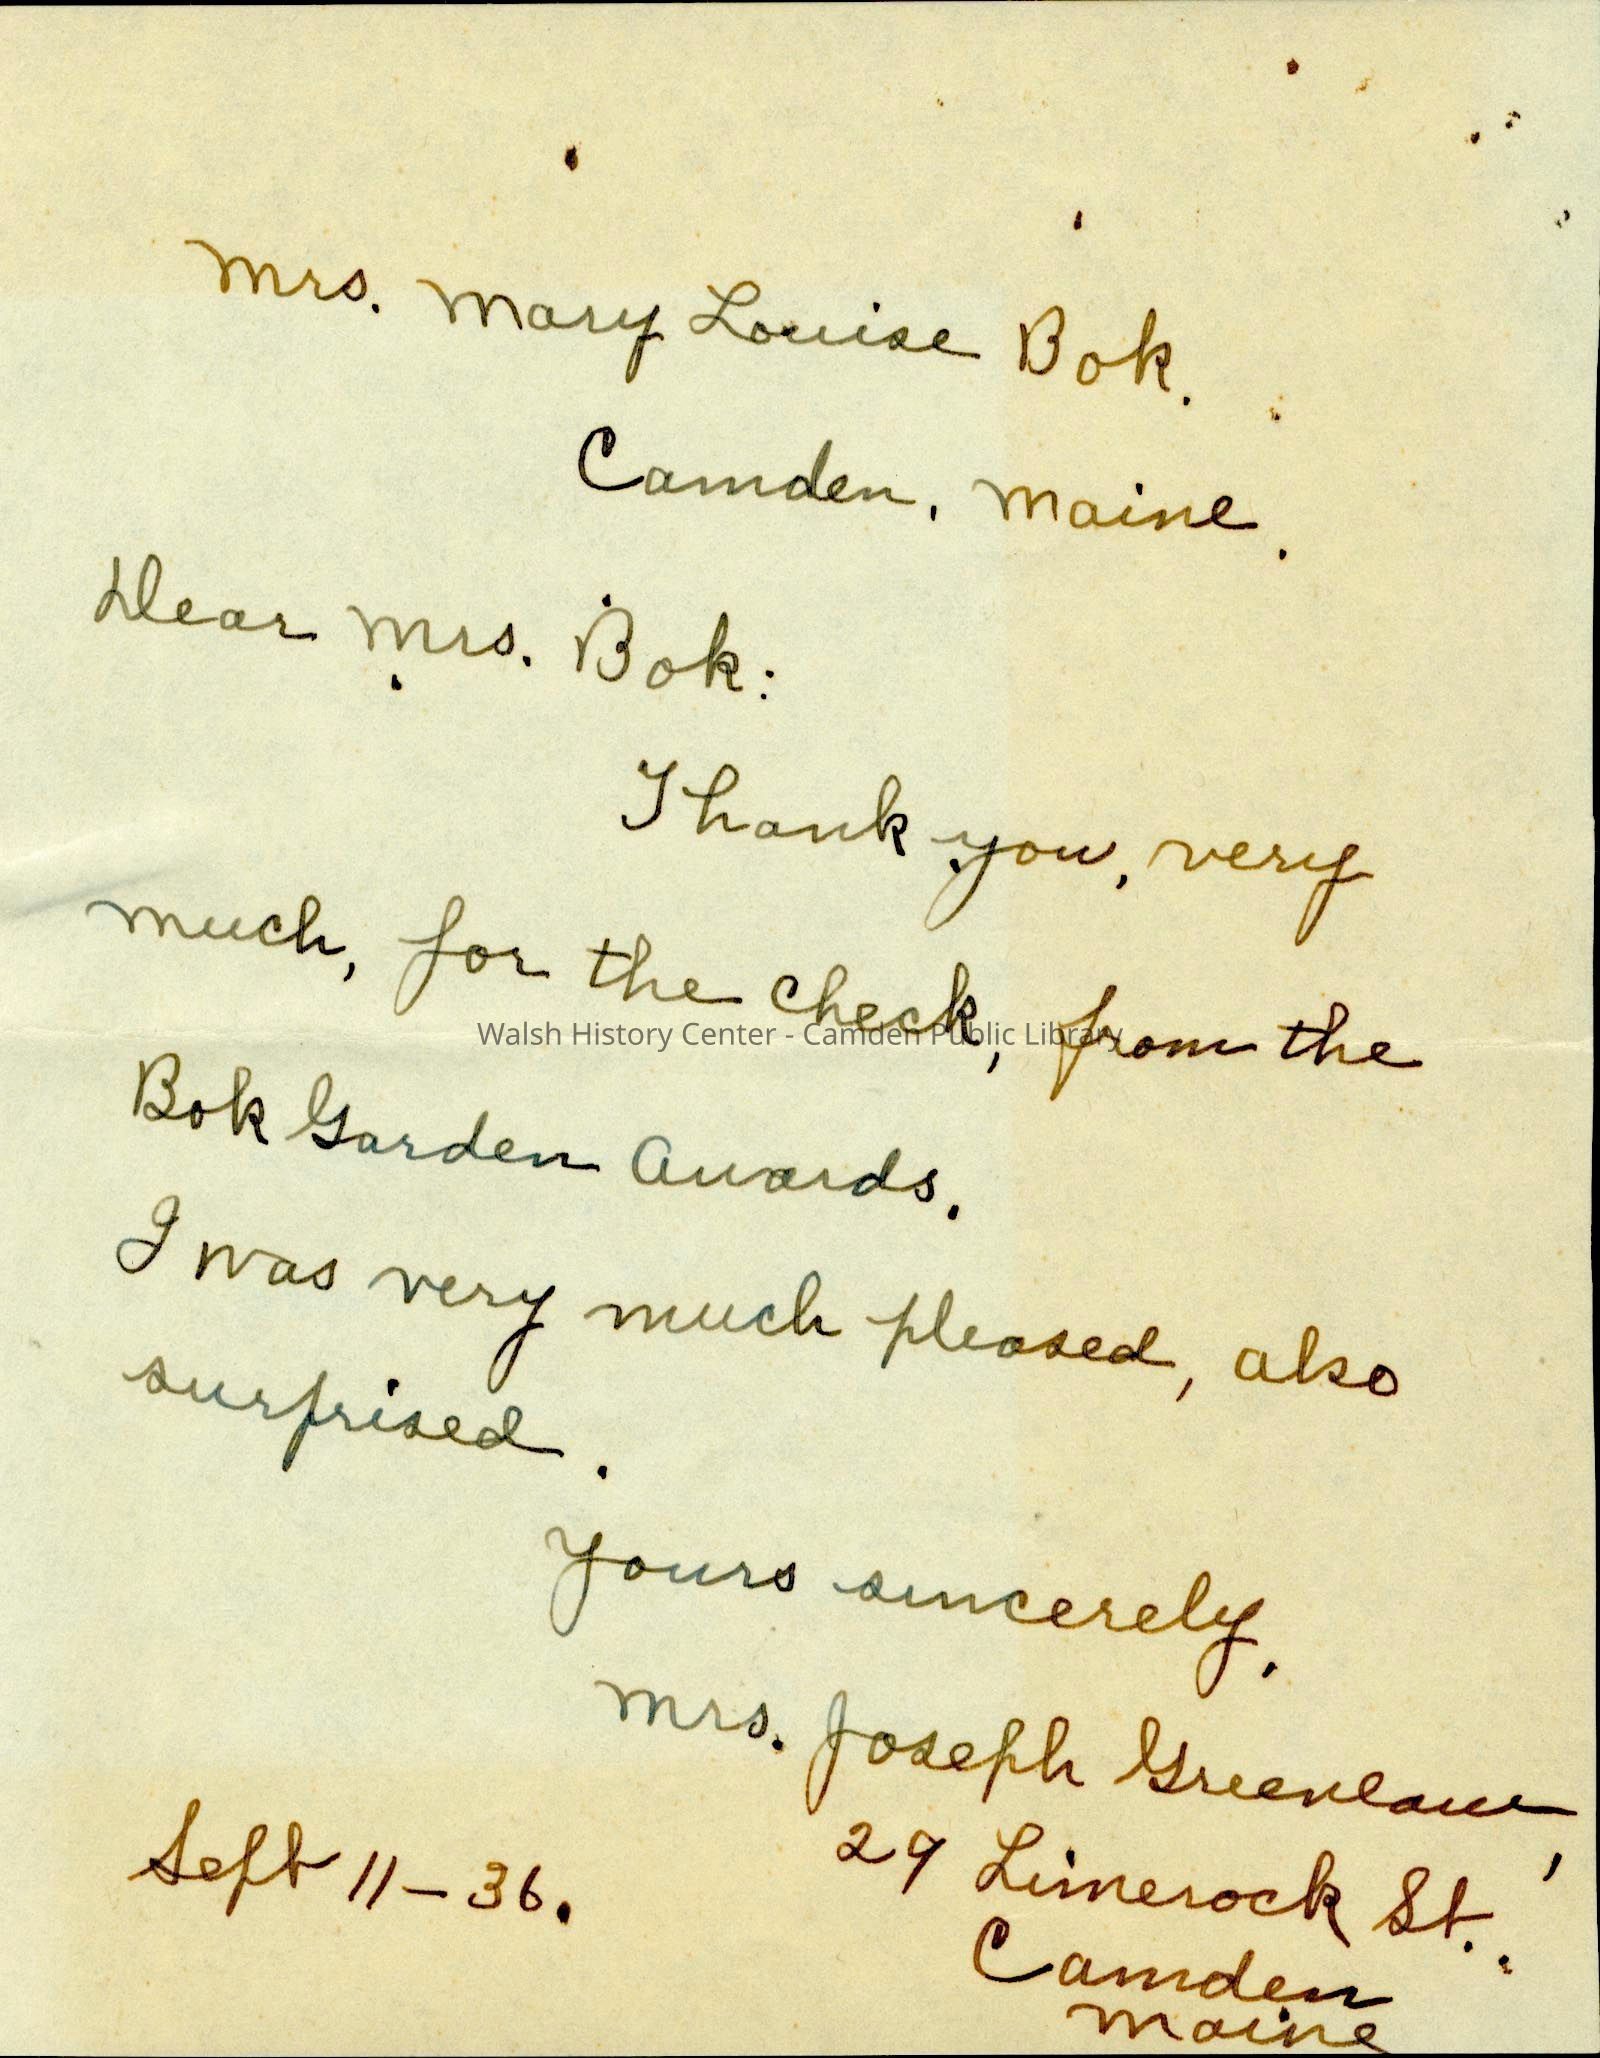 Mrs. Mary Louise Bok.
Camden, Maine.
Dear Mrs. Bok:
Thank you, very
much, for the check, from the
Walsh History Center - Camden Public Library
Bok Garden Awards.
I was very much pleased, also
surprised.
Yours sincerely,
Mrs. Joseph Greenlaw,
Sept 11-36.
29 Limerock St.
Camden
Maine